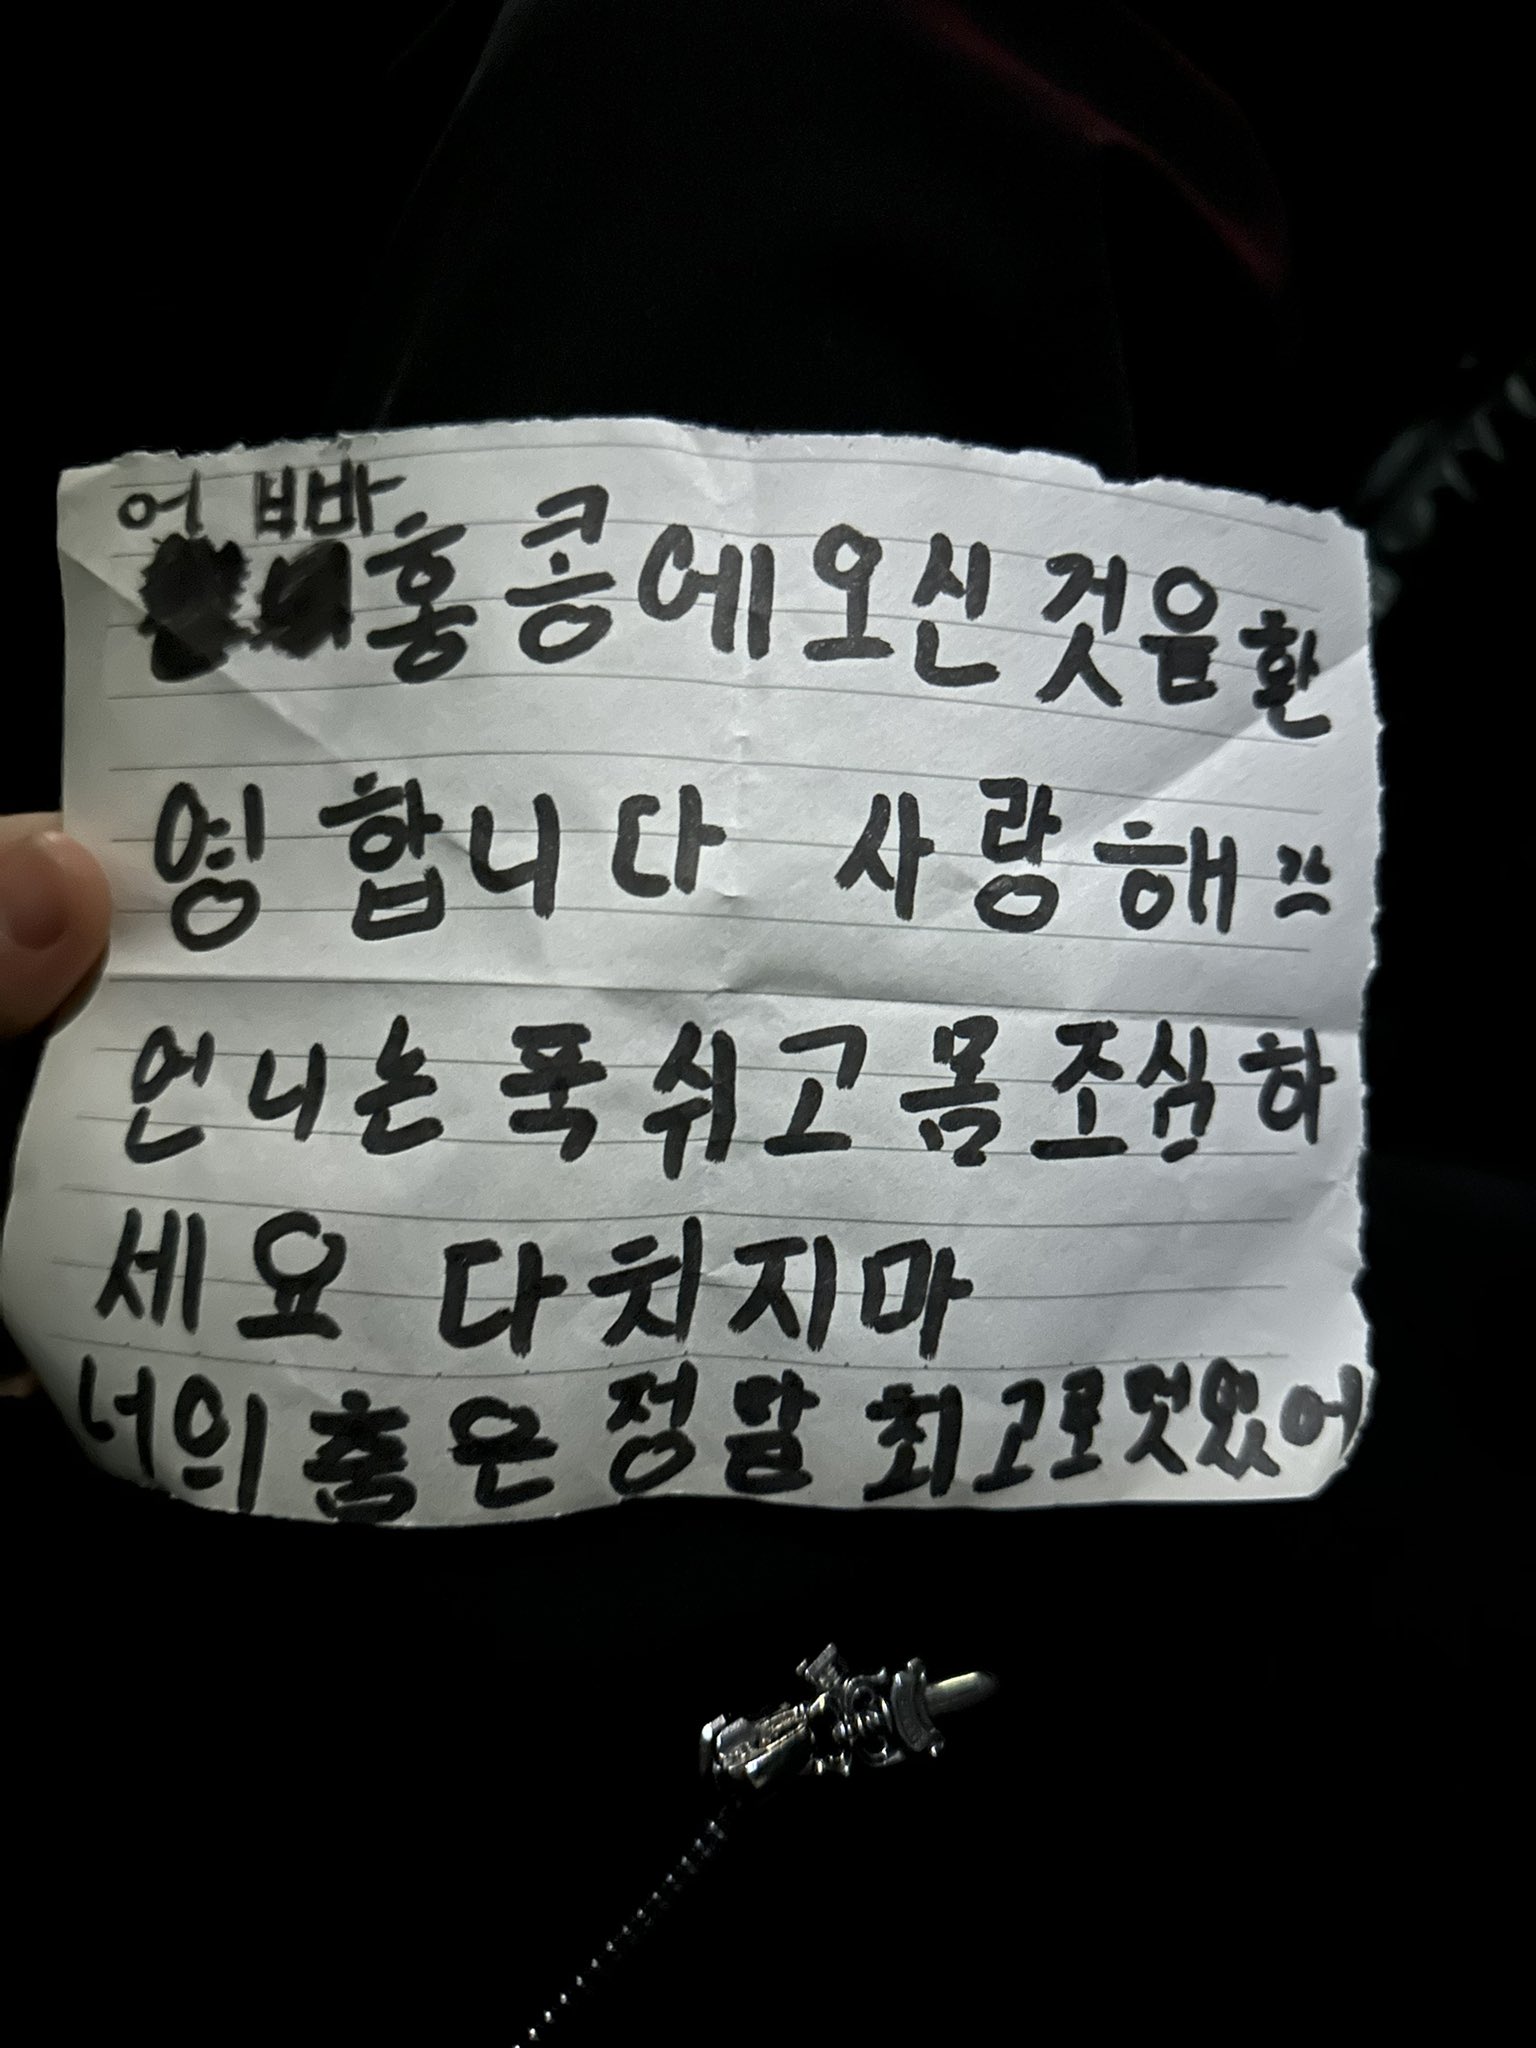 어 빠
홍콩에오신것을환
영합니다 사랑해
언니는 푹 쉬고 몸조심하
세요 다치지마
너의 춤은 정말 최고로멋있어